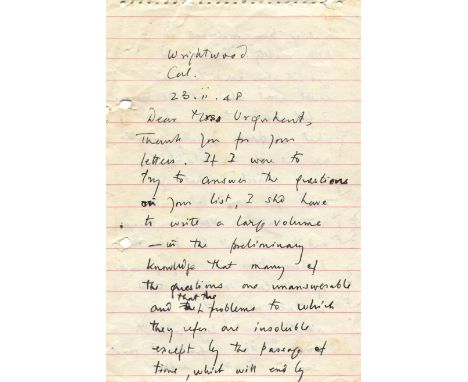 Wrightwood
Cal.
23.ii.48
Dear Urquhart,
Thank you for your
letters. If I were to
try to answer the questions
on your list, I shd have
to write a large volume
— in the preliminary
knowledge that many of
the questions are unanswerable
and that the problems to which
they refer are insoluble
except by the passage of
time, which will end by